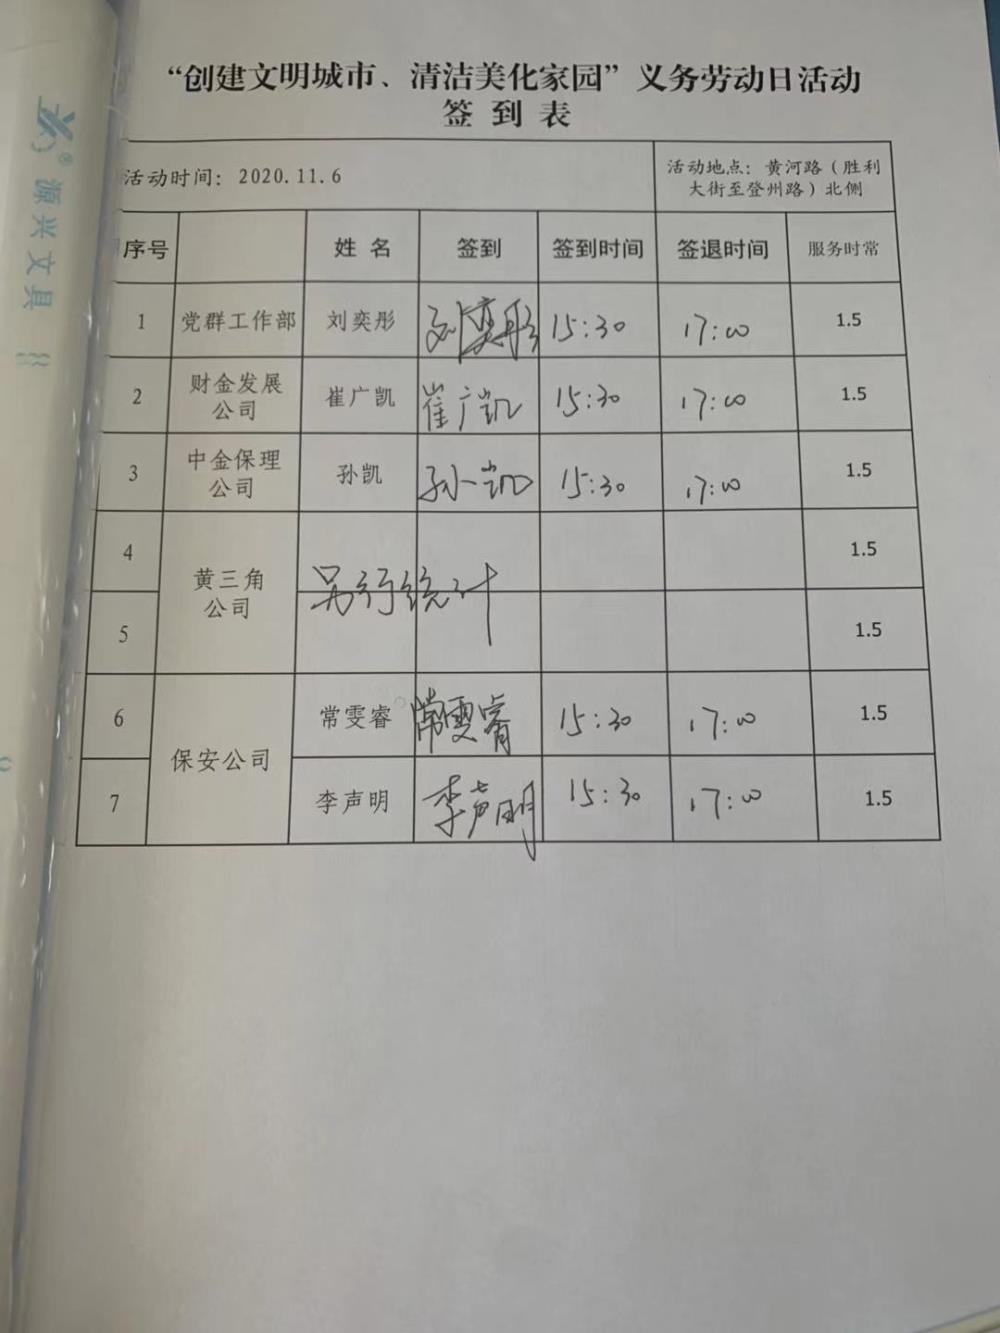 “创建文明城市、清洁美化家园”义务劳动日活动
签到表
活动时间：2020.11.6
活动地点：黄河路（胜利
大街至登州路）北侧
序号 姓名 签到 签到时间 签退时间 服务时常
1 党群工作部 刘奕彤 刘奕彤 15:30 17:00 1.5
2 财金发展
公司 崔广凯 崔广凯 15:30 17:00 1.5
3 中金保理
公司 孙凯 孙凯 15:30 17:00 1.5
4 1.5
黄三角
公司 另行统计
5 1.5
6 常雯睿 常雯睿 15:30 17:00 1.5
保安公司
7 李声明 李声明 15:30 17:00 1.5
源兴文具